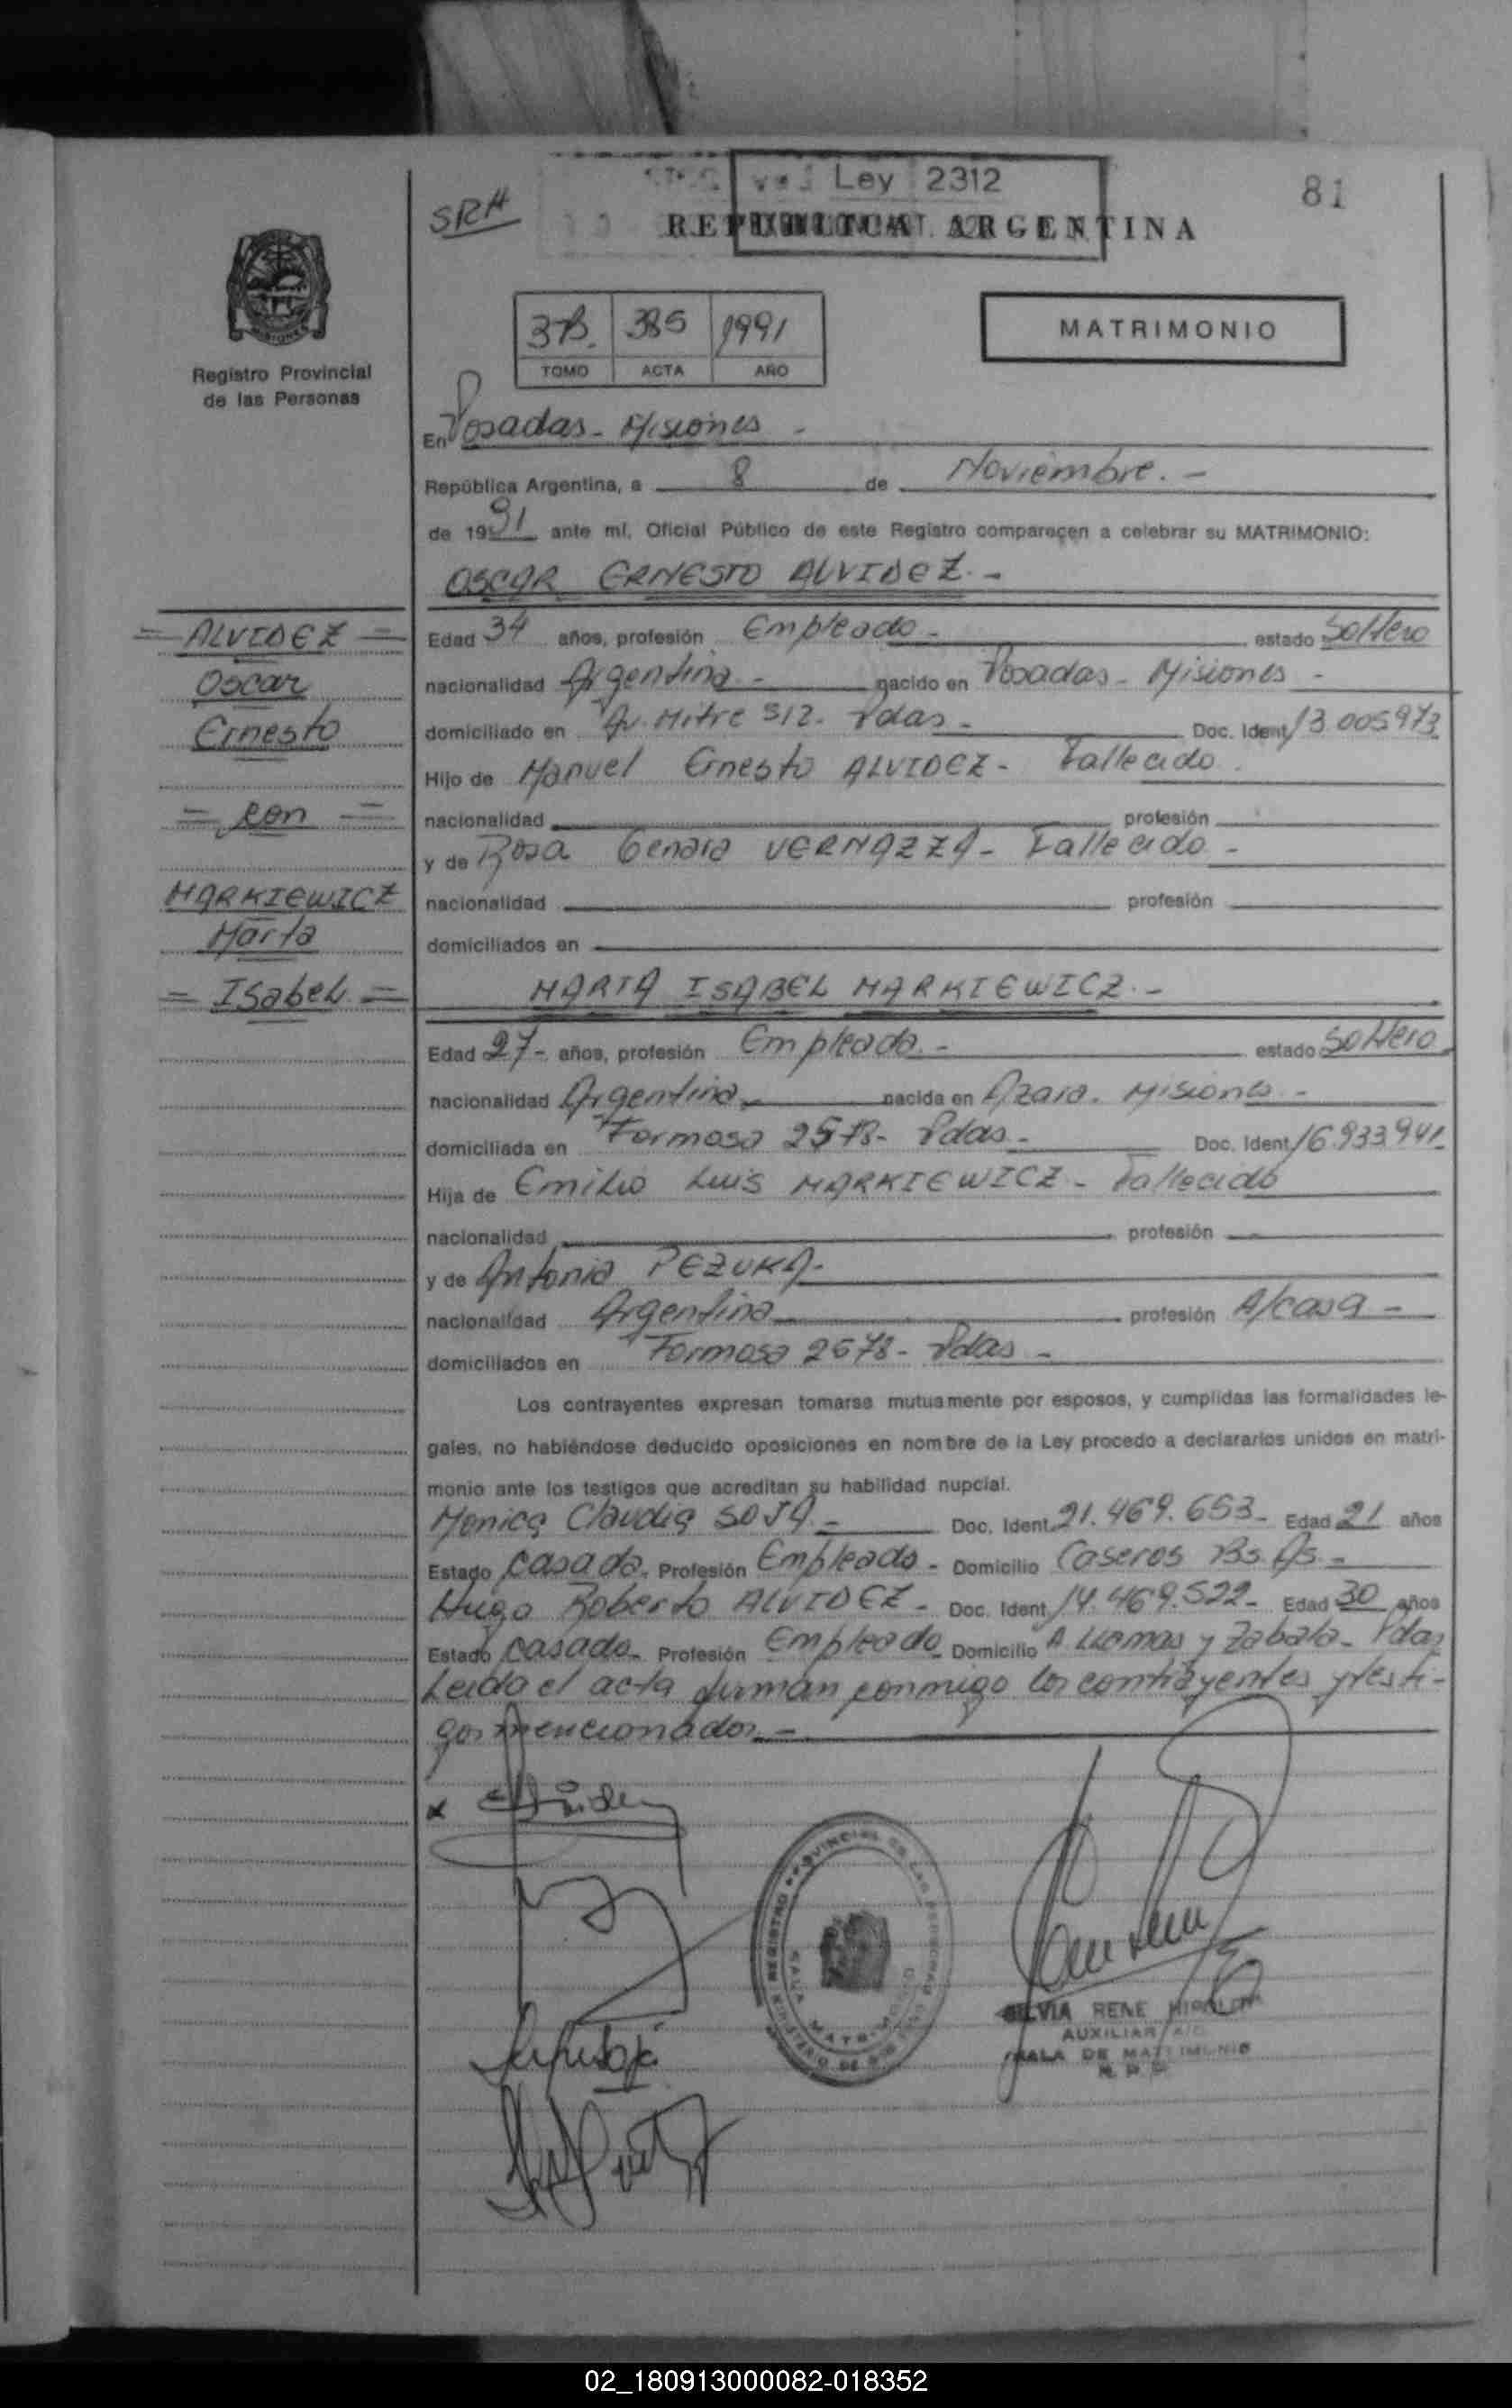 Ley 2312
81
SRH
REPUBLICA ARGENTINA
Registro Provincial
de las Personas
3B. 385 1991
TOMO ACTA AÑO
MATRIMONIO
En Posadas - Misiones -
República Argentina, a 8 de Noviembre. -
de 1991 ante mí, Oficial Público de este Registro comparecen a celebrar su MATRIMONIO:
OSCAR ERNESTO ALVIDEZ. -
= ALVIDEZ =
Oscar
Ernesto
= con =
MARKIEWICZ
Marta
= Isabel =
Edad 34 años, profesión Empleado - estado Soltero
nacionalidad Argentina - nacido en Posadas - Misiones -
domiciliado en Av. Mitre 512. Pdas - Doc. Ident 13.005973
Hijo de Manuel Ernesto ALVIDEZ - Fallecido
nacionalidad profesión
y de Rosa Genara VERNAZZA - Fallecido -
nacionalidad profesión
domiciliados en
MARTA ISABEL MARKIEWICZ. -
Edad 27 - años, profesión Empleada. - estado Soltero
nacionalidad Argentina nacida en Azara. Misiones -
domiciliada en Formosa 2578 - Pdas - Doc. Ident 16.933.941
Hija de Emilio Luis MARKIEWICZ - Fallecido
nacionalidad profesión
y de Antonia PEZUKA -
nacionalidad Argentina profesión A/casa -
domiciliados en Formosa 2578 - Pdas -
Los contrayentes expresan tomarse mutuamente por esposos, y cumplidas las formalidades le-
gales, no habiéndose deducido oposiciones en nombre de la Ley procedo a declararlos unidos en matri-
monio ante los testigos que acreditan su habilidad nupcial.
Monica Claudia SOSA - Doc. Ident. 21.469.653 - Edad 21 años
Estado Casada. Profesión Empleado - Domicilio Caseros Bs. As. -
Hugo Roberto ALVIDEZ - Doc. Ident 14.469.522 - Edad 30 años
Estado Casado - Profesión Empleado Domicilio A. Llamas y Zabala - Pdas
Leida el acta firman conmigo los contrayentes y testi-
gos mencionados. -
REGISTRO PROVINCIAL DE LAS PERSONAS
SILVIA RENE
AUXILIAR
SALA DE MATRIMONIO
02_180913000082-018352